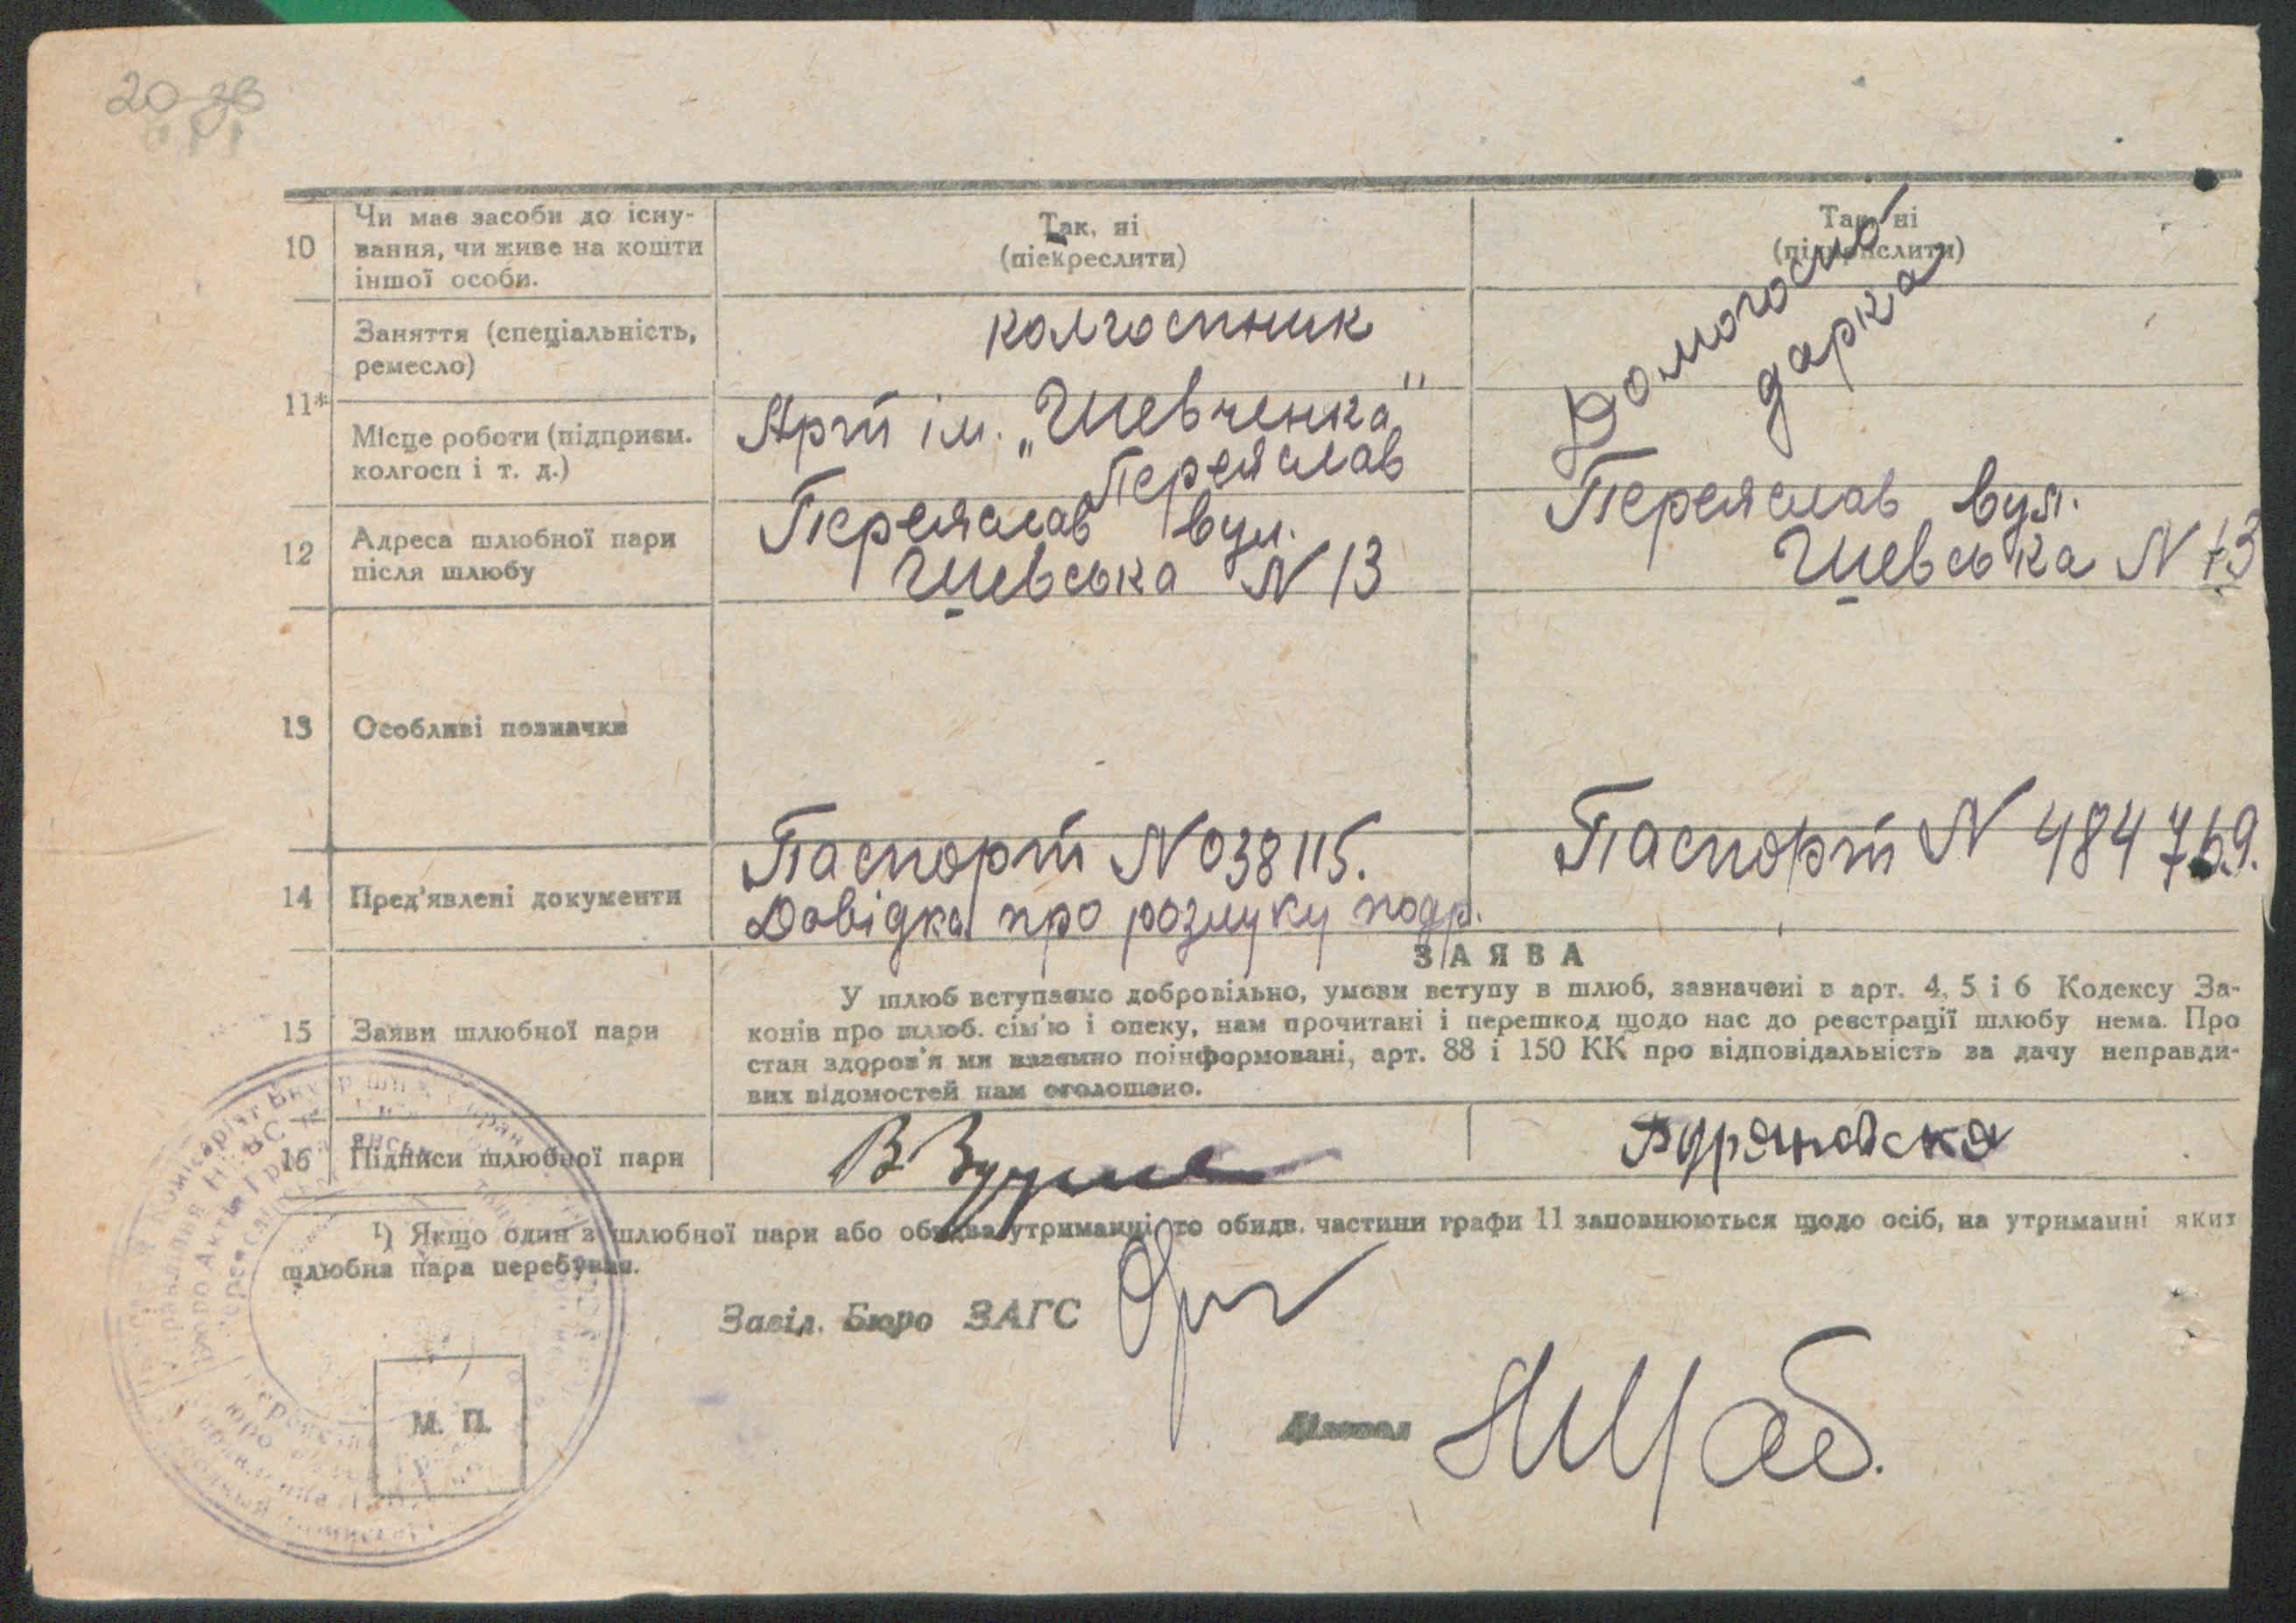 20
10
Чи має засоби до існу-
вання, чи живе на кошти
іншої особи.
Так, ні
(піекреслити)
Так, ні
(підкреслити)
11*
Заняття (спеціальність,
ремесло)
колгоспник
Домогоспо
дарка
Місце роботи (підприєм.
колгосп і т. д.)
Арт ім. „Шевченка"
Переяслав
12
Адреса шлюбної пари
після шлюбу
Переяслав вул.
Шевська N 13
Переяслав вул.
Шевська N 13
13
Особливі позначки
14
Пред'явлені документи
Паспорт N 038115.
Довідка про розлуку подр.
Паспорт N 484769.
15
Заяви шлюбної пари
ЗАЯВА
У шлюб вступаємо добровільно, умови вступу в шлюб, зазначені в арт. 4, 5 і 6 Кодексу За-
конів про шлюб. сім'ю і опеку, нам прочитані і перешкод щодо нас до реєстрації шлюбу нема. Про
стан здоров'я ми взаємно поінформовані, арт. 88 і 150 КК про відповідальність за дачу неправди-
вих відомостей нам оголошено.
16
Підписи шлюбної пари
¹) Якщо один з шлюбної пари або обидва утриманці то обидв. частини графи 11 заповнюються щодо осіб, на утриманні яких
шлюбна пара перебуває.
Завід. Бюро ЗАГС
Діловод
М. П.